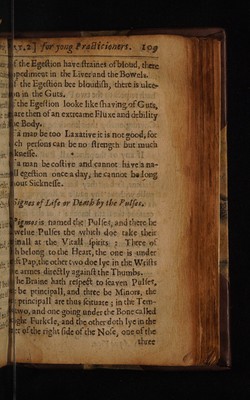 for yong Practitioners. 109
f the Egestion have straines of bloud, there
pediment in the Liver and the Bowels.
f the Egestion bee bloudish, there is ulce-
on in the Guts.
f the Egestion looke like shaving of Guts,
are then of an extreame Fluxe and debility
he Body.
a man be too Laxative it is not good, for
ch persons can be no strength but much
knesse.
a man be costive and cannot have a na-
ll egestion once a day, he cannot be long
hout Sicknesse.
Signes of Life or Death by the Pulses.
Pigmos is named the Pulses, and there be
welve Pulses the which doe take their
inall at the Vitall Spirits; Three of
h belong to the Heart, the one is under
ft Pap, the other two doe lye in the Wrists
he armes directly against the Thumbs.
he Braine hath respect to seaven Pulses,
be principall, and three be Minors, the
principall are thus scituate; in the Tem-
two, and one going under the Bone called
ight Furkele, and the other doth lye in the
ner of the right side of the Nose, one of the
three